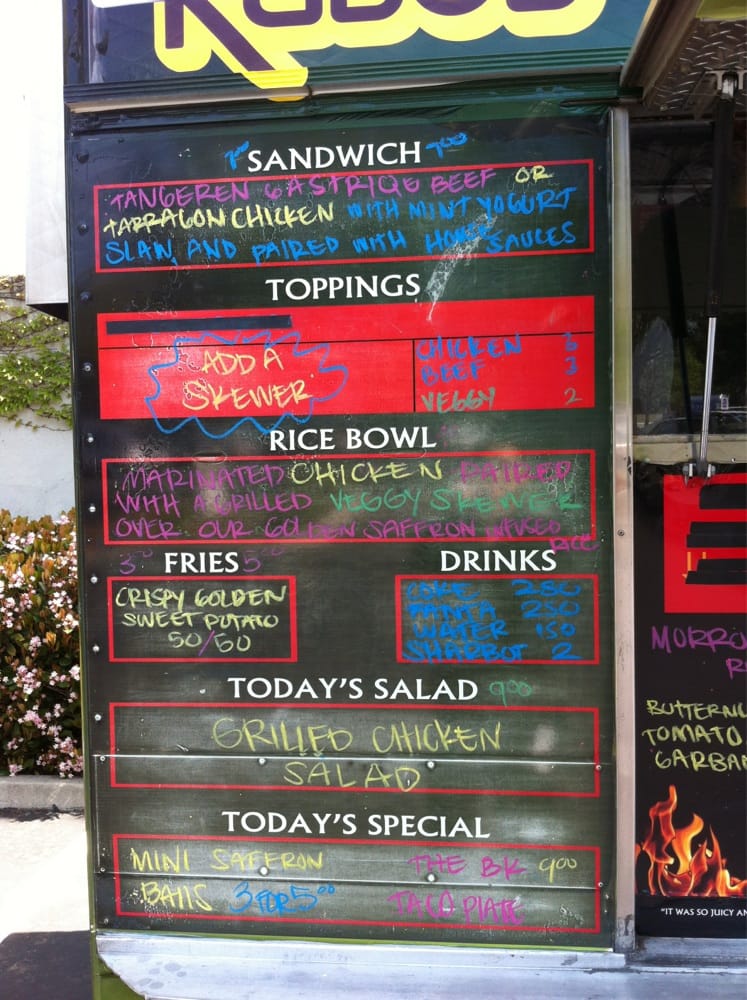 KABOB
7.00 SANDWICH 7.00
TANGEREN GASTRIQE BEEF OR
TARRAGON CHICKEN WITH MINT YOGURT
SLAW, AND PAIRED WITH HOUSE SAUCES
TOPPINGS
ADD A
SKEWER
CHICKEN 3
BEEF 3
VEGGY 2
RICE BOWL
MARINATED CHICKEN PAIRED
WITH A GRILLED VEGGY SKEWER
OVER OUR GOLDEN SAFFRON INFUSED
RICE
3.00 FRIES 5
CRISPY GOLDEN
SWEET POTATO
50/50
DRINKS
COKE 250
FANTA 250
WATER 150
SHARBOT 2
TODAY'S SALAD 9.00
GRILLED CHICKEN
SALAD
TODAY'S SPECIAL
MINI SAFFRON
BALLS 3 FOR 5.00
THE BK 9.00
TACO PLATE
MORRO
R
BUTTERNU
TOMATO
GARBAN
"IT WAS SO JUICY AN